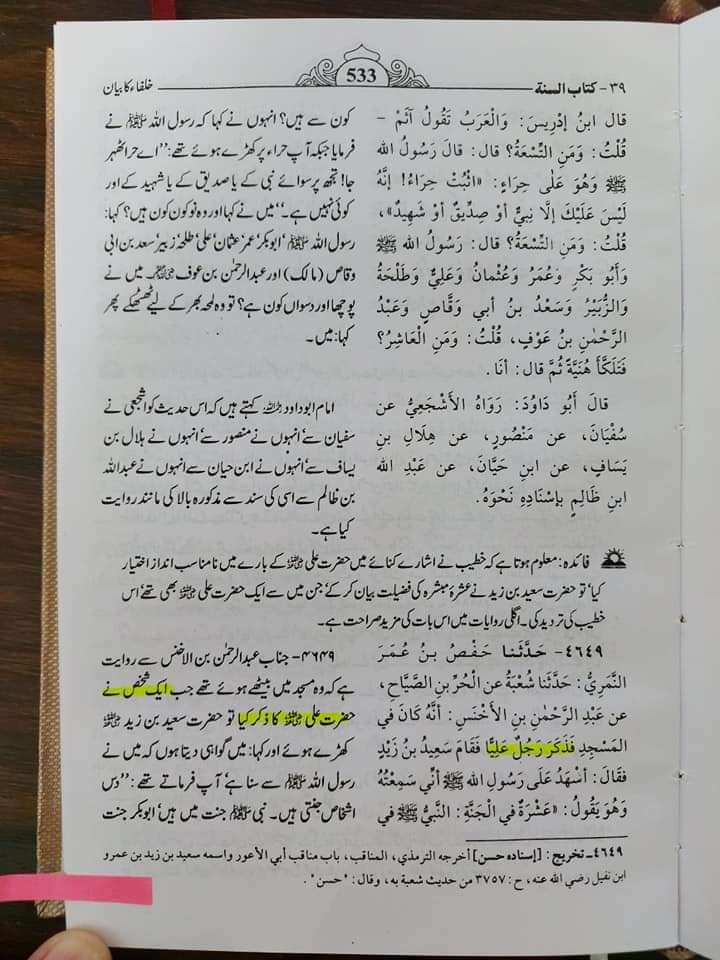 ٣٩- كتاب السنة
533
خلفاء کا بیان
قال ابنُ إدْرِيسَ: وَالْعَرَبُ تَقُولُ آثَمْ -
قُلْتُ: وَمَنِ التِّسْعَةُ؟ قال: قالَ رَسُولُ الله
ﷺ وَهُوَ عَلَى حِرَاءٍ: «اثْبُتْ حِرَاءُ! إنَّهُ
لَيْسَ عَلَيْكَ إلَّا نَبِيٌّ أوْ صِدِّيقٌ أوْ شَهِيدٌ»،
قُلْتُ: وَمَنِ التِّسْعَةُ؟ قال: رَسُولُ الله ﷺ
وَأَبُو بَكْرٍ وَعُمَرُ وَعُثْمانُ وَعَلِيٌّ وَطَلْحَةُ
وَالزُّبَيْرُ وَسَعْدُ بنُ أبي وَقَّاصٍ وَعَبْدُ
الرَّحْمٰنِ بنُ عَوْفٍ، قُلْتُ: وَمَنِ الْعَاشِرُ؟
فَتَلَكَّأَ هُنَيَّةً ثُمَّ قال: أنَا.
قالَ أَبُو دَاوُدَ: رَوَاهُ الأَشْجَعِيُّ عن
سُفْيَانَ، عن مَنْصُورٍ، عن هِلَالِ بنِ
يَسَافٍ، عن ابنِ حَيَّانَ، عن عَبْدِ الله
ابنِ ظَالِمٍ بإسْنَادِهِ نَحْوَهُ.
کون سے ہیں؟ انہوں نے کہا کہ رسول اللہ ﷺ نے
فرمایا جبکہ آپ حراء پر کھڑے ہوئے تھے: ”اے حرا ٹھہر
جا! تجھ پر سوائے نبی کے یا صدیق کے یا شہید کے اور
کوئی نہیں ہے۔“ میں نے کہا اور وہ نو کون کون ہیں؟ کہا:
رسول اللہ ﷺ ، ابوبکر، عمر، عثمان، علی، طلحہ، زبیر، سعد بن ابی
وقاص (مالک) اور عبدالرحمٰن بن عوف ؓ۔ میں نے
پوچھا اور دسواں کون ہے؟ تو وہ لمحہ بھر کے لیے ٹھٹھکے پھر
کہا: میں۔
امام ابوداود ؒ کہتے ہیں کہ اس حدیث کو اشجعی نے
سفیان سے، انہوں نے منصور سے، انہوں نے ہلال بن
یساف سے، انہوں نے ابن حیان سے انہوں نے عبداللہ
بن ظالم سے اسی کی سند سے مذکورہ بالا کی مانند روایت
کیا ہے۔
فائدہ: معلوم ہوتا ہے کہ خطیب نے اشارے کنائے میں حضرت علی ؓ کے بارے میں نامناسب انداز اختیار
کیا، تو حضرت سعید بن زید نے عشرۂ مبشرہ کی فضیلت بیان کر کے، جن میں سے ایک حضرت علی ؓ بھی تھے، اس
خطیب کی تردید کی۔ اگلی روایات میں اس بات کی مزید صراحت ہے۔
٤٦٤٩- حَدَّثَنا حَفْصُ بنُ عُمَرَ
النَّمَرِيُّ: حَدَّثَنا شُعْبَةُ عن الْحُرِّ بنِ الصَّيَّاحِ،
عن عَبْدِ الرَّحْمٰنِ بنِ الأَخْنَسِ: أنَّهُ كَانَ في
المَسْجِدِ فَذَكَرَ رَجُلٌ عَلِيًّا فَقَامَ سَعِيدُ بنُ زَيْدٍ
فقالَ: أشْهَدُ عَلَى رَسُولِ الله ﷺ أنِّي سَمِعْتُهُ
وَهُوَ يَقُولُ: «عَشْرَةٌ في الْجَنَّةِ: النَّبيُّ ﷺ في
٤٦٤٩- جناب عبدالرحمٰن بن الاخنس سے روایت
ہے کہ وہ مسجد میں بیٹھے ہوئے تھے جب ایک شخص نے
حضرت علی ؓ کا ذکر کیا تو حضرت سعید بن زید ؓ
کھڑے ہوئے اور کہا: میں گواہی دیتا ہوں کہ میں نے
رسول اللہ ﷺ سے سنا ہے، آپ فرماتے تھے: ”دس
اشخاص جنتی ہیں۔ نبی ﷺ جنت میں ہیں، ابوبکر جنت
٤٦٤٩- تخريج: [إسناده حسن] أخرجه الترمذي، المناقب، باب مناقب أبي الأعور واسمه سعيد بن زيد بن عمرو
ابن نفيل رضي الله عنه، ح: ٣٧٥٧ من حديث شعبة به، وقال: "حسن".